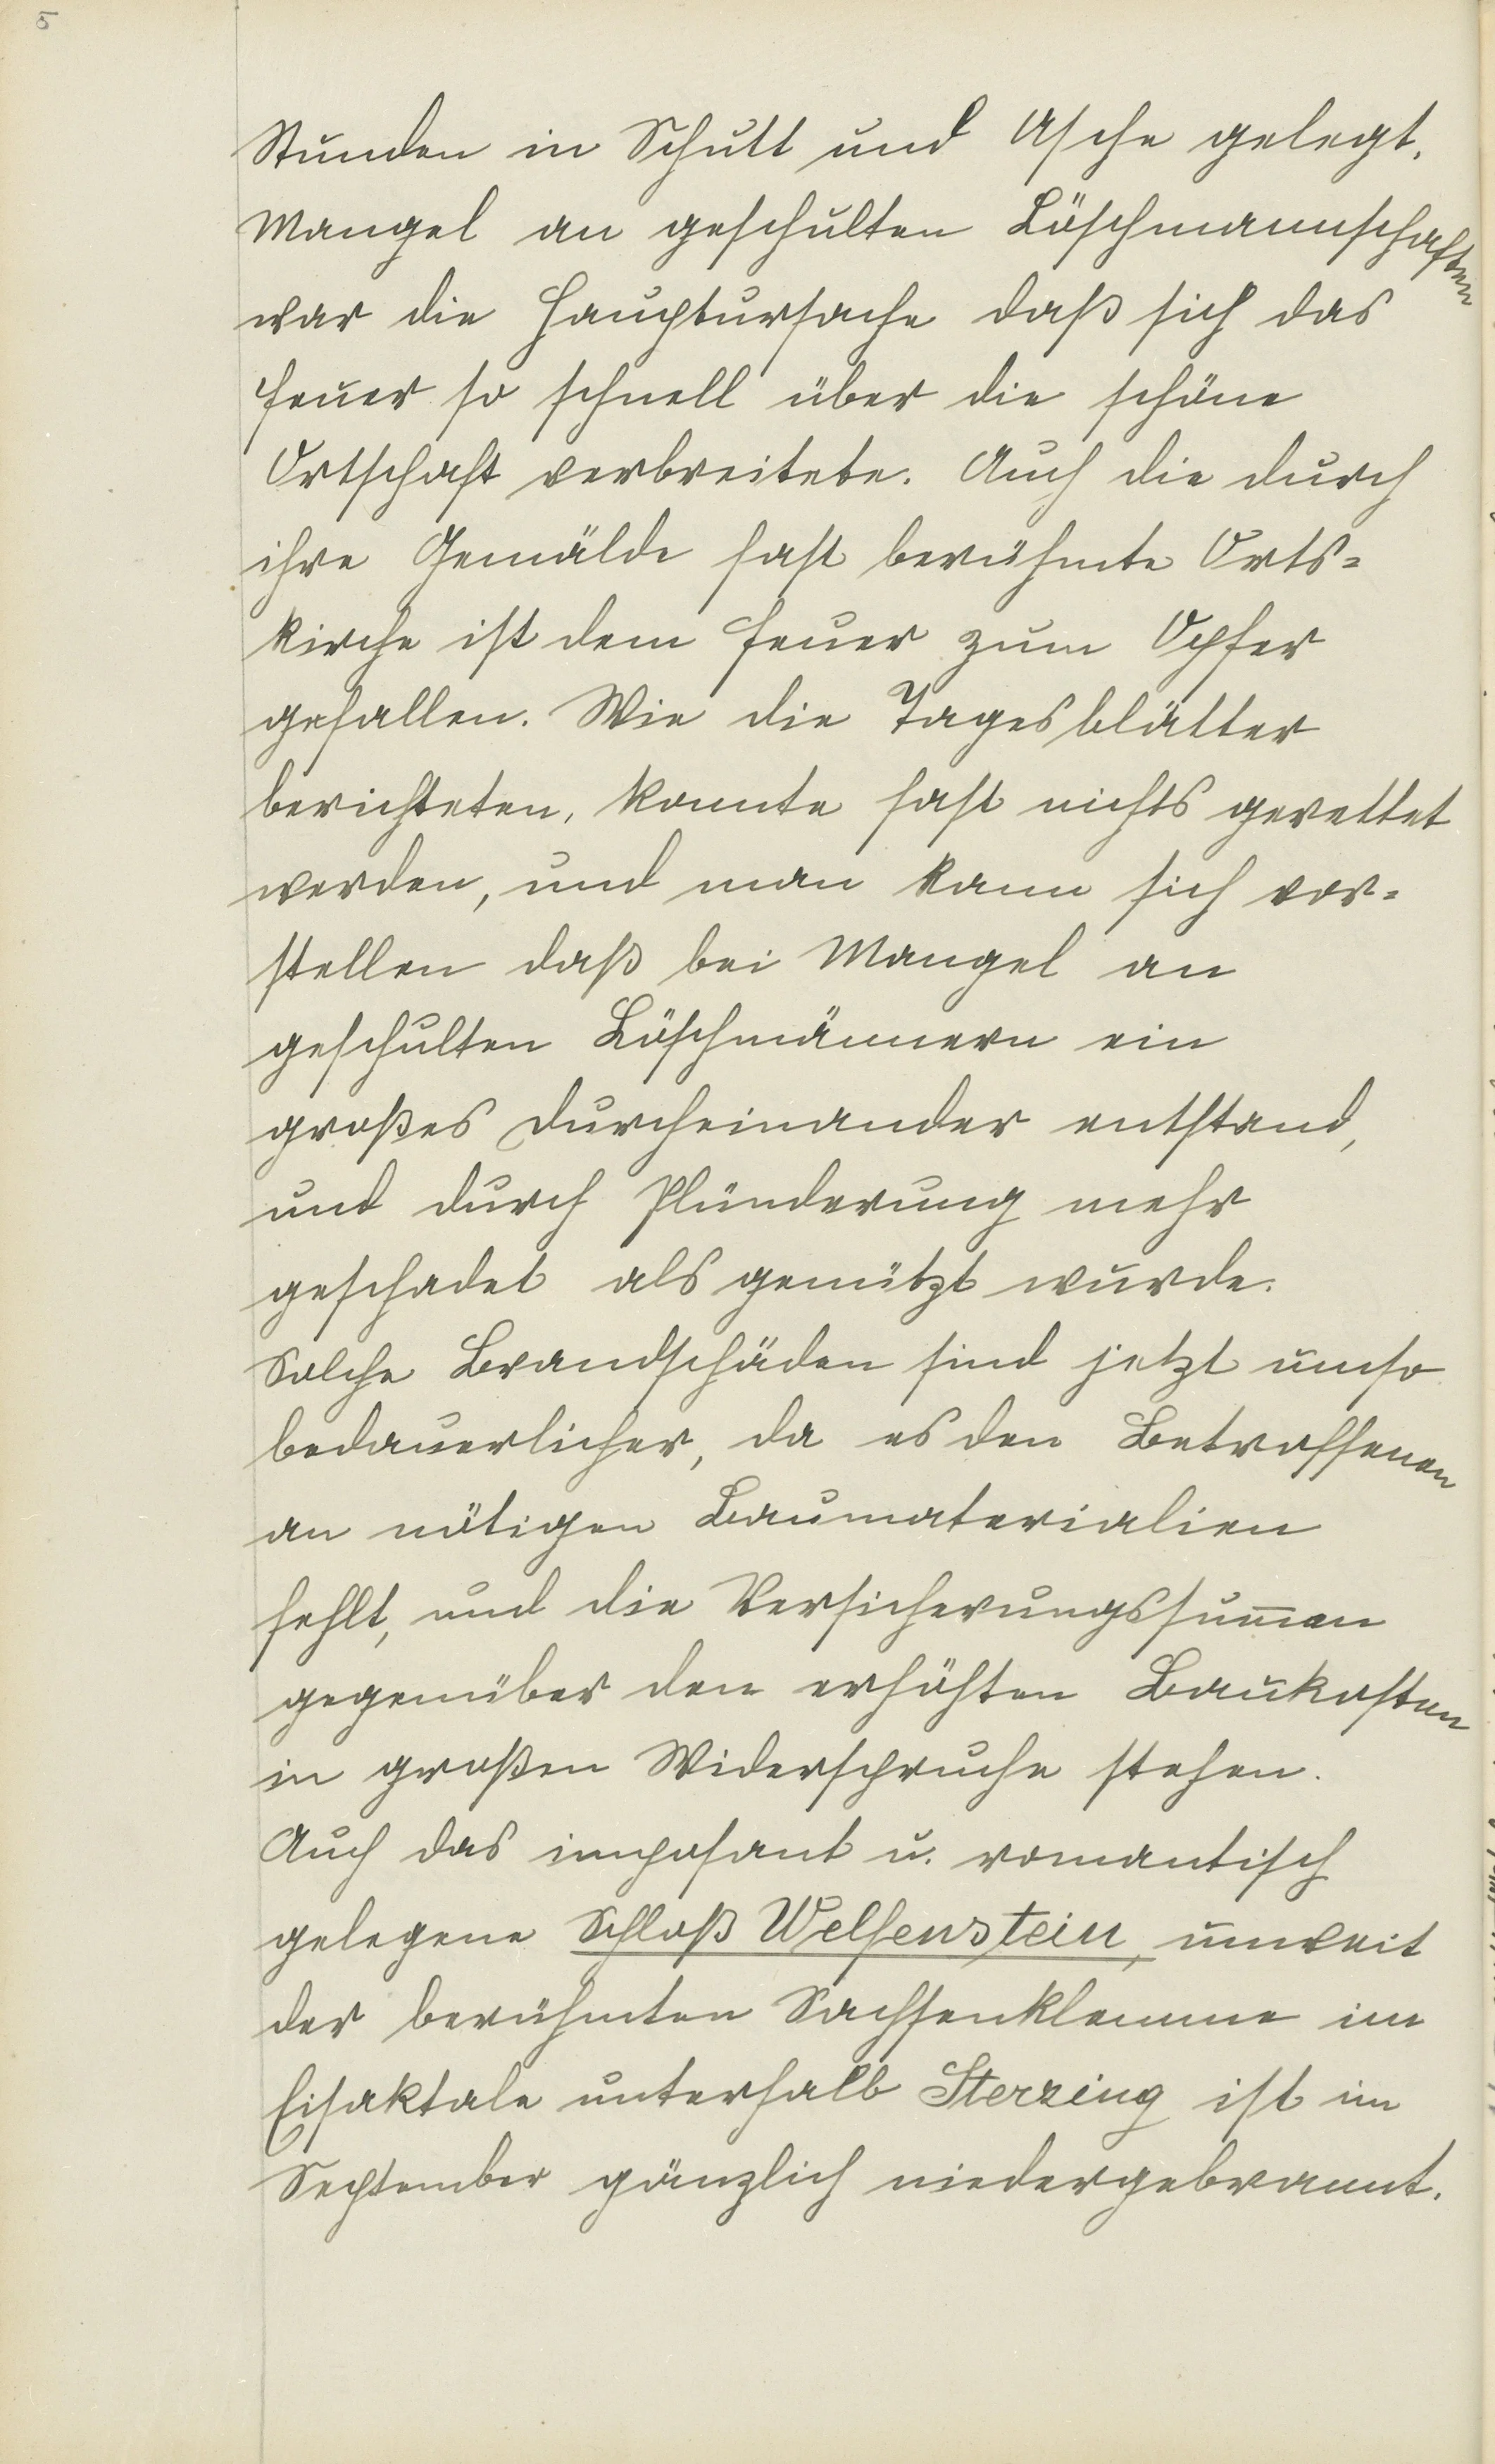 5
Stunden in Schutt und Asche gelegt.
Mangel an geschulten Löschmannschaften
war die Hauptursache daß sich das
Feuer so schnell über die schöne
Ortschaft verbreitete. Auch die durch
ihre Gemälde fast berühmte Orts=
kirche ist dem Feuer zum Opfer
gefallen. Wie die Tagesblätter
berichteten, konnte fast nichts gerettet
werden, und man kann sich vor=
stellen daß bei Mangel an
geschulten Löschmännern ein
großes Durcheinander entstand,
und durch Plünderung mehr
geschadet als genützt wurde.
Solche Brandschäden sind jetzt umso
bedauerlicher, da es den Betroffenen
an nötigen Baumaterialien
fehlt, und die Versicherungssum̅en
gegenüber den erhöhten Baukosten
in großen Widerspruche stehen.
Auch das imposant u. romantisch
gelegene Schloß Welfenstein, unweit
der berühmten Sachsenklemme im
Eisaktale unterhalb Sterzing ist im
September gänzlich niedergebrannt.